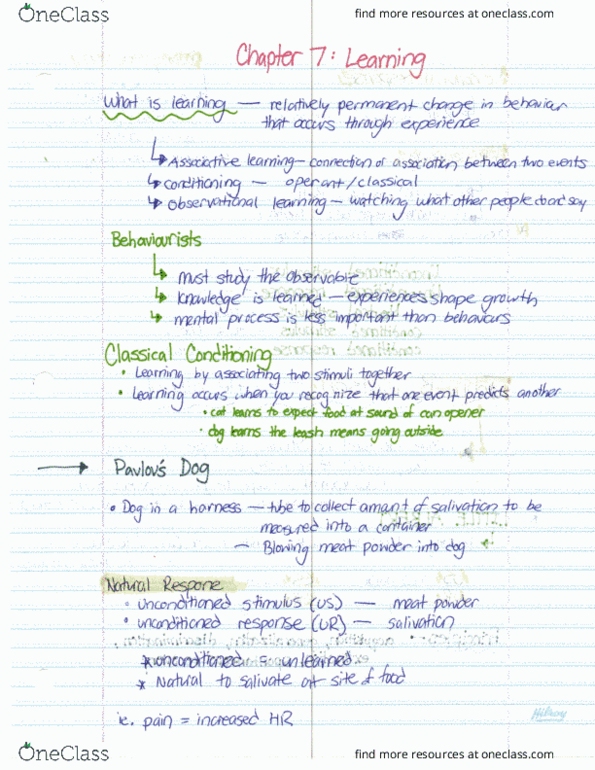 OneClass
find more resources at oneclass.com
Chapter 7: Learning
What is learning — relatively permanent change in behaviour
that occurs through experience
Associative learning — connection or association between two events
conditioning — operant/classical
observational learning — watching what other people do and say
Behaviourists
must study the observable
knowledge is learned — experiences shape growth
mental process is less important than behaviours
Classical Conditioning
• Learning by associating two stimuli together
• Learning occurs when you recognize that one event predicts another
• cat learns to expect food at sound of can opener
• dog learns the leash means going outside
→ Pavlov's Dog
• Dog in a harness — tube to collect amant of salivation to be
measured into a container
— Blowing meat powder into dog
Natural Respone
• unconditioned stimulus (US) — meat powder
• unconditioned response (UR) — salivation
* unconditioned = unlearned
* Natural to salivate at site of food
ie. pain = increased HR
Hilroy
OneClass
find more resources at oneclass.com